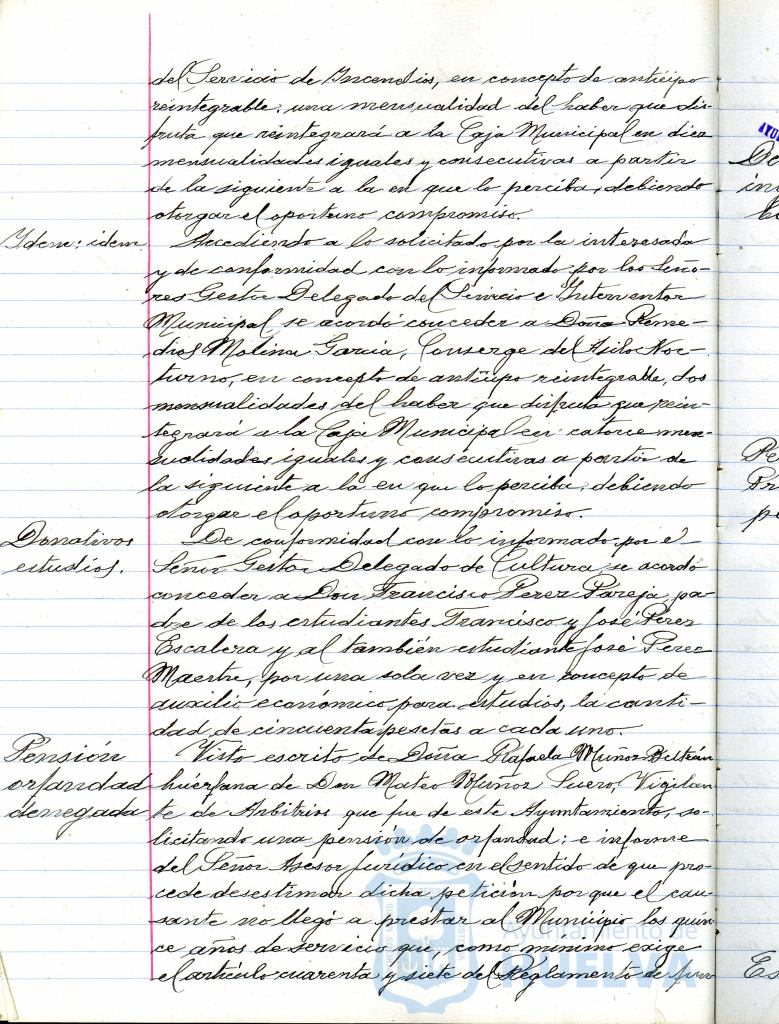 del Servicio de Incendios, en concepto de anticipo
reintegrable, una mensualidad del haber que dis-
fruta que reintegrará a la Caja Municipal en diez
mensualidades iguales y consecutivas a partir
de la siguiente a la en que lo perciba, debiendo
otorgar el oportuno compromiso.
Idem: idem.
Accediendo a lo solicitado por la interesada
y de conformidad con lo informado por los Seño-
res Gestor Delegado del Servicio e Interventor
Municipal, se acordó conceder a Doña Reme-
dios Molina García, Conserge del Asilo Noc-
turno, en concepto de anticipo reintegrable, dos
mensualidades del haber que disfruta que rein-
tegrará a la Caja Municipal en catorce men-
sualidades iguales y consecutivas a partir de
la siguiente a la en que lo perciba, debiendo
otorgar el oportuno compromiso.
Donativos
estudios.
De conformidad con lo informado por el
Señor Gestor Delegado de Cultura, se acordó
conceder a Don Francisco Perez Pareja, pa-
dre de los estudiantes Francisco y José Perez
Escalera y al también estudiante José Perez
Maestre, por una sola vez y en concepto de
auxilio económico para estudios, la canti-
dad de cincuenta pesetas a cada uno.
Pensión
orfandad
denegada
Visto escrito de Doña Rafaela Muñoz Beltrán
huérfana de Don Mateo Muñoz Suero, Vigilan-
te de Arbitrios que fue de este Ayuntamiento, so-
licitando una pensión de orfandad; e informe
del Señor Asesor Jurídico en el sentido de que pro-
cede desestimar dicha petición porque el cau-
sante no llegó a prestar al Municipio los quin-
ce años de servicio que, como minimo exige
el artículo cuarenta y siete del Reglamento de
Ayuntamiento de
HUELVA